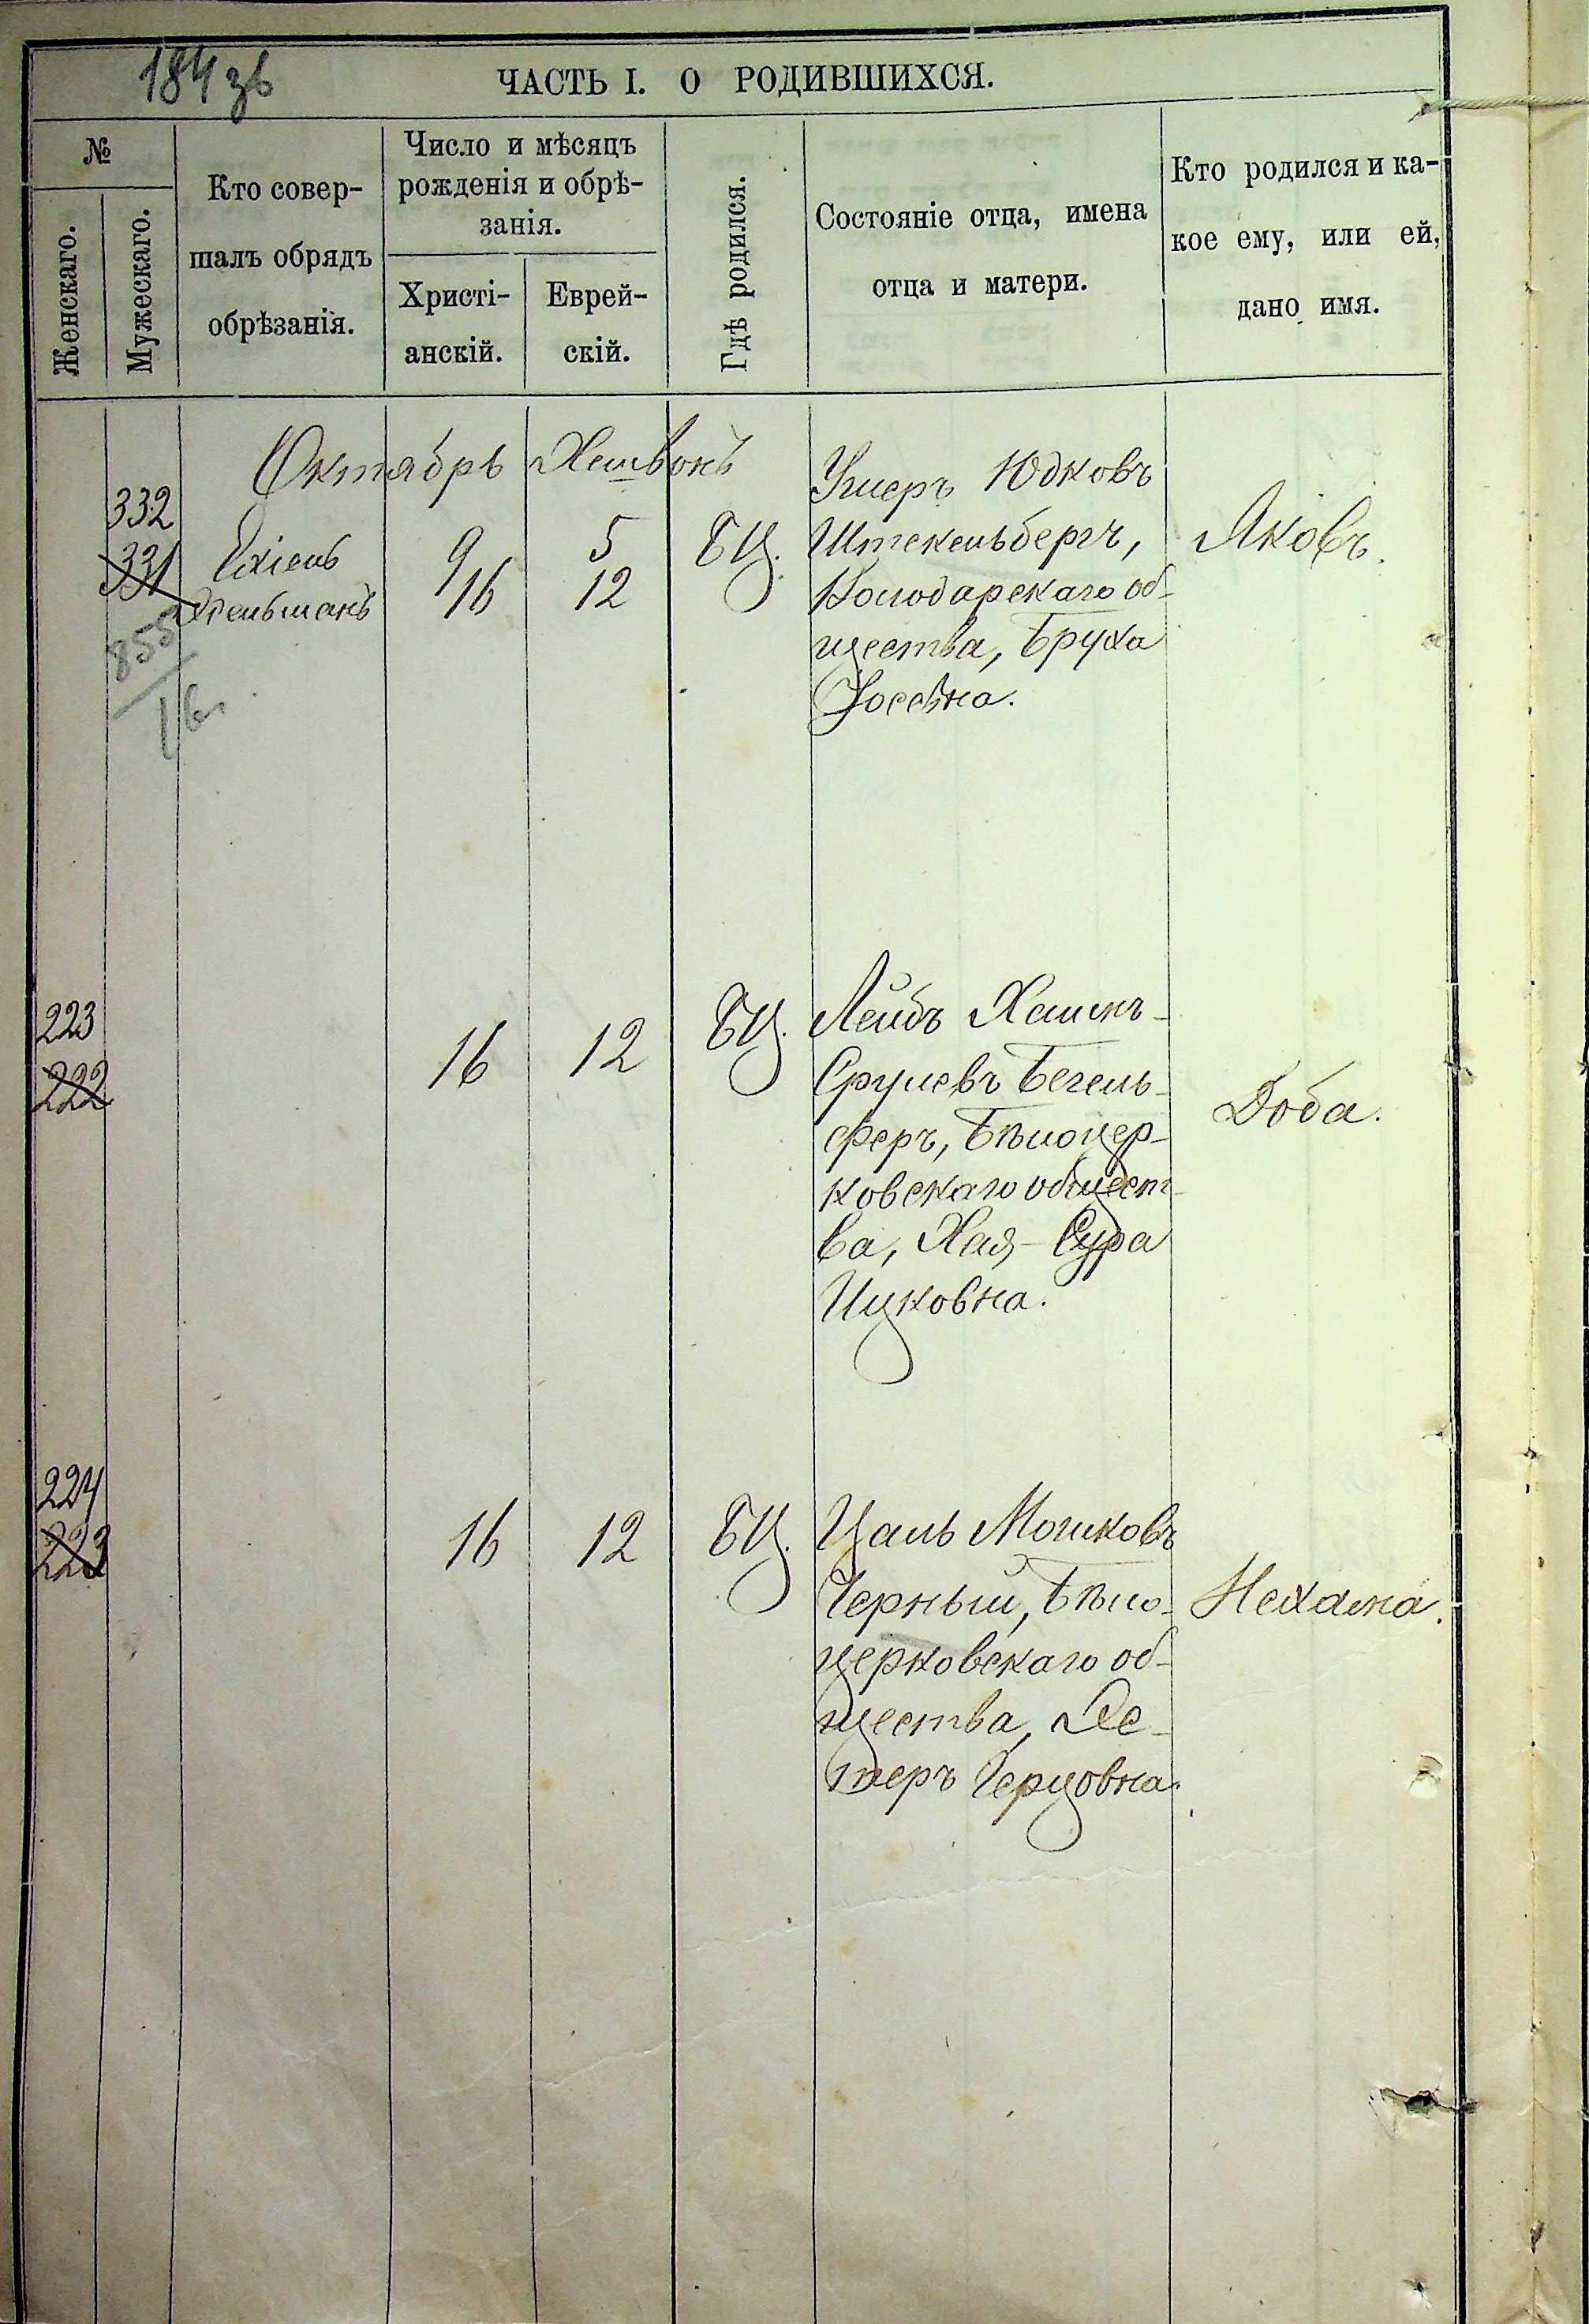 184 зв
ЧАСТЬ I. О РОДИВШИХСЯ.
№
Женскаго.
Мужескаго.
Кто совер-
шалъ обрядъ
обрѣзанія.
Число и мѣсяцъ
рожденія и обрѣ-
занія.
Христі-
анскій.
Еврей-
скій.
Гдѣ родился.
Состояніе отца, имена
отца и матери.
Кто родился и ка-
кое ему, или ей,
дано имя.
Октябрь Хешвонъ
332
331
855
Ехіель
9
16
5
12
БЦ.
Ушеръ Юдковъ
Штекельбергъ,
Володарскаго об-
щества, Бруха
Іосевна.
Яковъ.
223
222
16
12
БЦ.
Лейбъ Хаимъ-
Срулевъ Бегель-
феръ, Бѣлоцер-
ковскаго общест-
ва, Хая-Сура
Ицковна.
Доба.
224
223
16
12
БЦ.
Цаль Мошковъ
Черный, Бѣло-
церковскаго об-
щества, Ес-
теръ Герцовна.
Нехама.